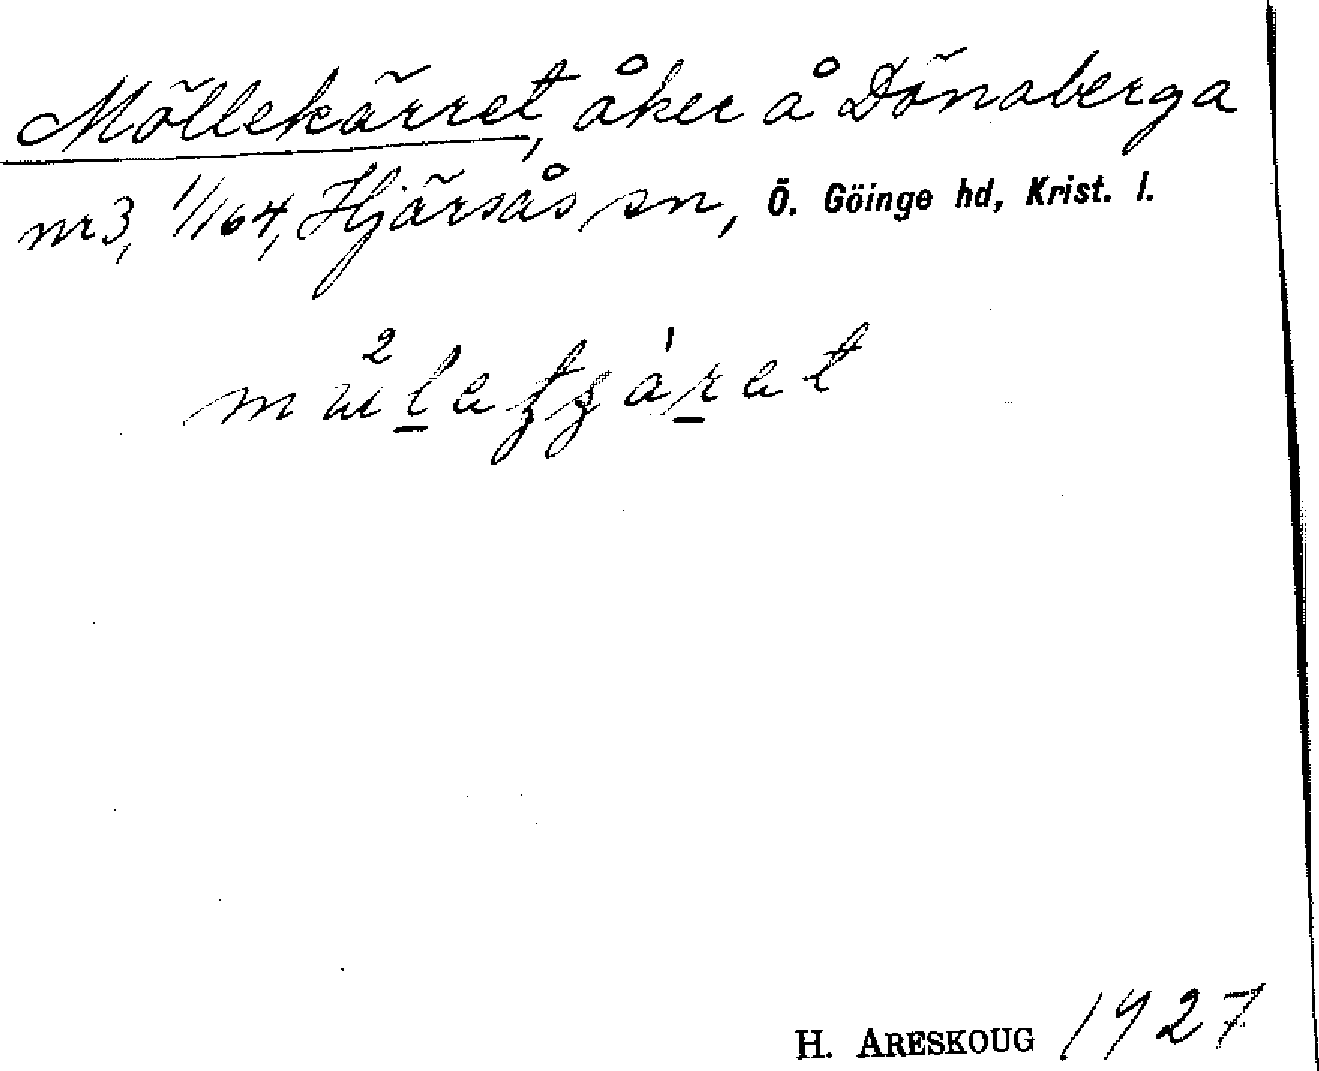 Möllekärret, åker å Dönaberga
nr 3, 1/164, Hjärsås sn, Ö. Göinge hd, Krist. l.
H. ARESKOUG 1927